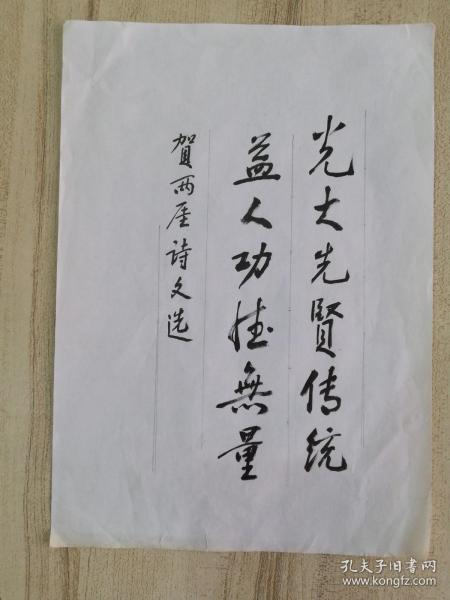 光大先賢传统
益人功德無量
賀两厓詩文选
孔夫子旧书网
www.kongfz.com